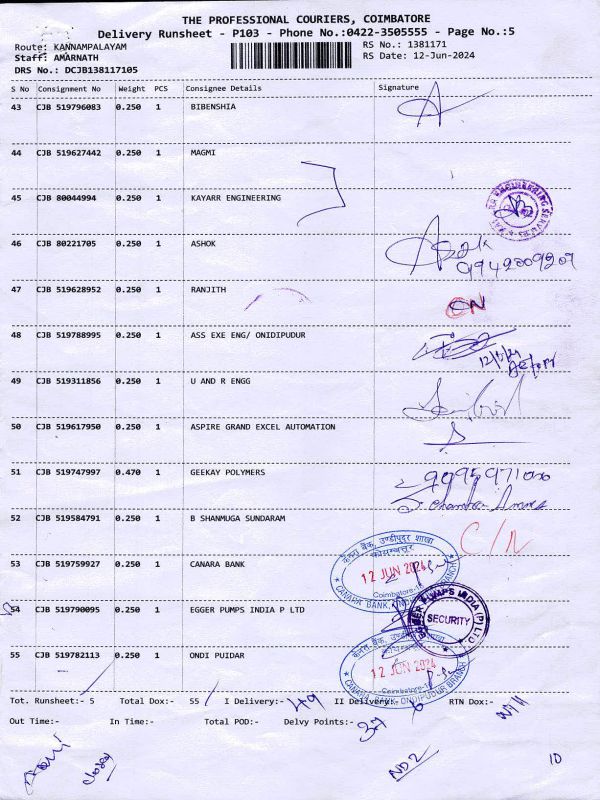 THE PROFESSIONAL COURIERS, COIMBATORE
Delivery Runsheet - P103 - Phone No.:0422-3505555 - Page No.:5
Route: KANNAMPALAYAM RS No.: 1381171
Staff: AMARNATH RS Date: 12-Jun-2024
DRS No.: DCJB138117105
S No Consignment No Weight PCS Consignee Details Signature
43 CJB 519796083 0.250 1 BIBENSHIA
44 CJB 519627442 0.250 1 MAGMI
45 CJB 80044994 0.250 1 KAYARR ENGINEERING
46 CJB 80221705 0.250 1 ASHOK
9942009209
47 CJB 519628952 0.250 1 RANJITH
48 CJB 519788995 0.250 1 ASS EXE ENG/ ONIDIPUDUR
49 CJB 519311856 0.250 1 U AND R ENGG
50 CJB 519617950 0.250 1 ASPIRE GRAND EXCEL AUTOMATION
51 CJB 519747997 0.470 1 GEEKAY POLYMERS
52 CJB 519584791 0.250 1 B SHANMUGA SUNDARAM
C/N
53 CJB 519759927 0.250 1 CANARA BANK
केनरा बैंक, उण्डीपुदूर शाखा
कोयम्बत्तूर
12 JUN 2024
Coimbatore-16
54 CJB 519790095 0.250 1 EGGER PUMPS INDIA P LTD
EGGER PUMPS INDIA (P) LTD
SECURITY
55 CJB 519782113 0.250 1 ONDI PUIDAR
12 JUN 2024
Coimbatore-16
CANARA BANK, ONDIPUDUR BRANCH
Tot. Runsheet:- 5 Total Dox:- 55 I Delivery:- 49 II Delivery:- 6 RTN Dox:-
Out Time:- In Time:- Total POD:- Delvy Points:- 37
ND2
10